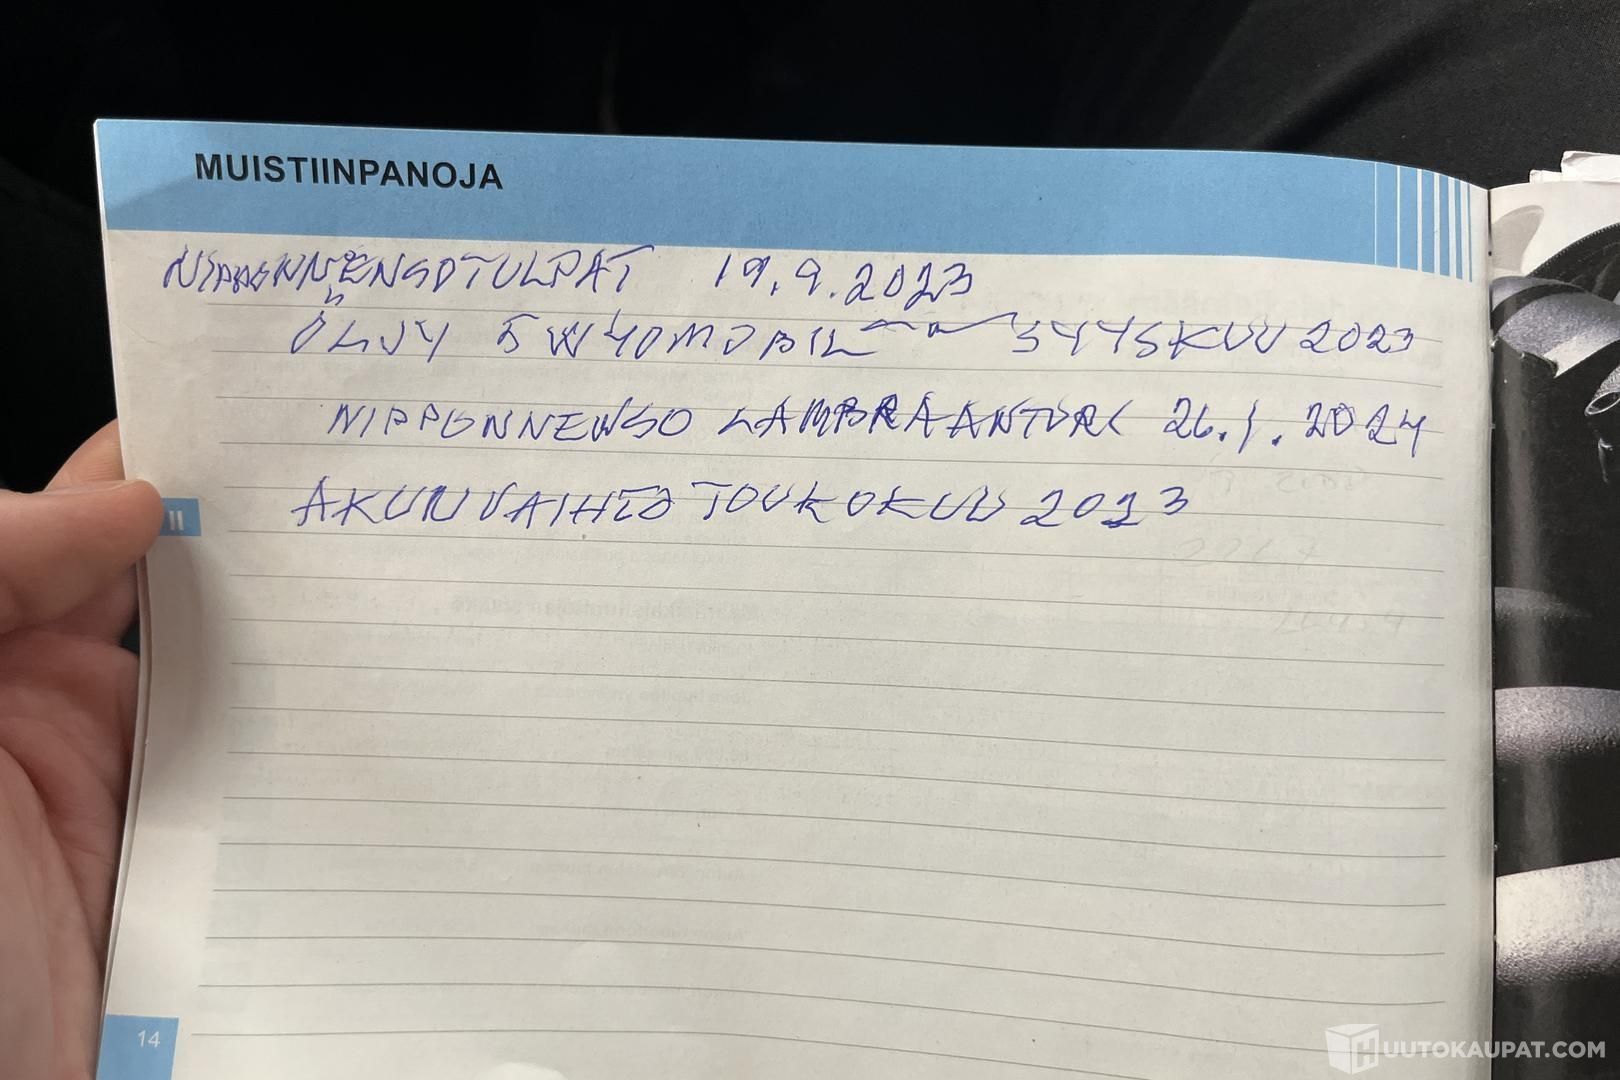 MUISTIINPANOJA
NIPPONNENSOTULPAT 19.9.2023
ÖLJY 5W40 MOBIL SYYSKUU 2023
NIPPONNENSO LAMBRAANTURI 26.1.2024
AKUNVAIHTO TOUKOKUU 2023
II
14
HUUTOKAUPAT.COM